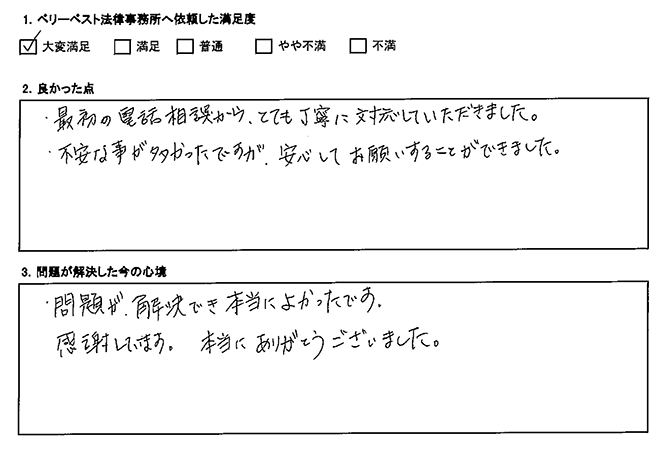 1. ベリーベスト法律事務所へ依頼した満足度
☑ 大変満足 □ 満足 □ 普通 □ やや不満 □ 不満
2. 良かった点
・最初の電話相談から、とても丁寧に対応していただきました。
・不安な事が多かったですが、安心してお願いすることができました。
3. 問題が解決した今の心境
・問題が、解決でき本当によかったです。
感謝しています。 本当にありがとうございました。